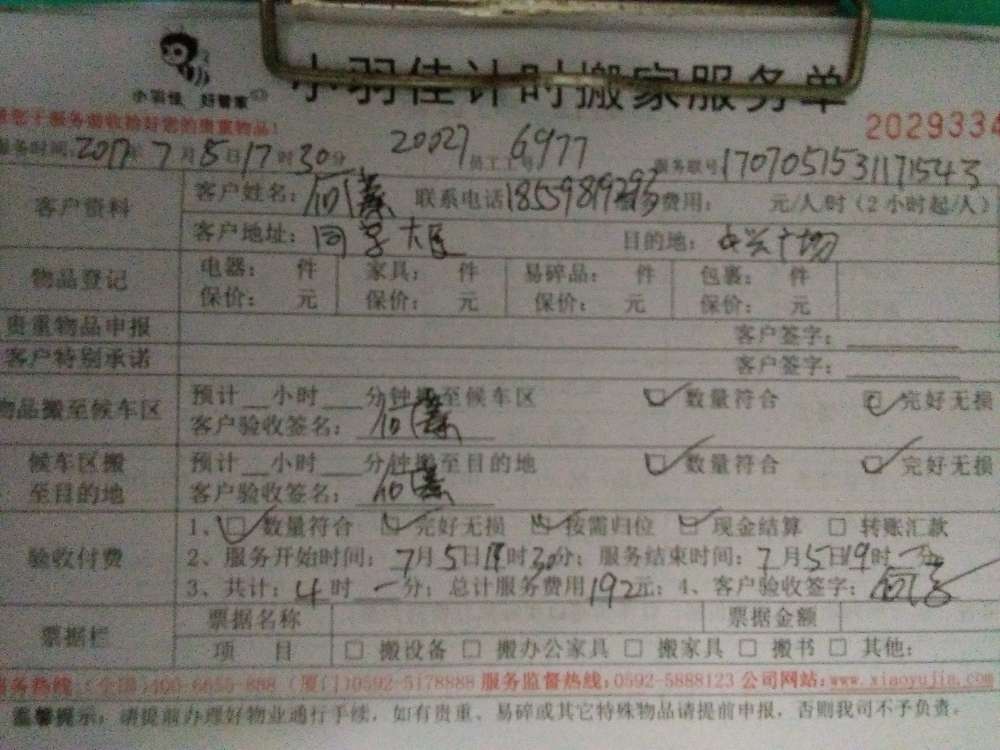 小羽佳 好管家
小羽佳计时搬家服务单
202933
服务时间:2017年7月5日17时30分 20027 员工工号 6977 服务联号
客户资料 客户姓名: 联系电话 服务费用: 元/人/时(2小时起/人)
客户地址: 目的地: 广场
物品登记 电器: 件 家具: 件 易碎品: 件 包裹: 件
保价: 元 保价: 元 保价: 元 保价: 元
贵重物品申报 客户签字:
客户特别承诺 客户签字:
物品搬至候车区 预计__小时___分钟搬至候车区 数量符合 完好无损
客户验收签名:
候车区搬至目的地 预计__小时___分钟搬至目的地 数量符合 完好无损
客户验收签名:
验收付费 1、数量符合 完好无损 按需归位 现金结算 转账汇款
2、服务开始时间:7月5日 时30分;服务结束时间:7月5日19时一分
3、共计:4时一分;总计服务费用192元;4、客户验收签字:
票据栏 票据名称 票据金额
项 目 搬设备 搬办公家具 搬家具 搬书 其他:
服务热线:(全国)400-6655-888 (厦门)0592-5178888 服务监督热线:0592-5888123 公司网站:www.xiaoyujia.com
温馨提示:请提前办理好物业通行手续,如有贵重、易碎或其它特殊物品请提前申报,否则我司不予负责。